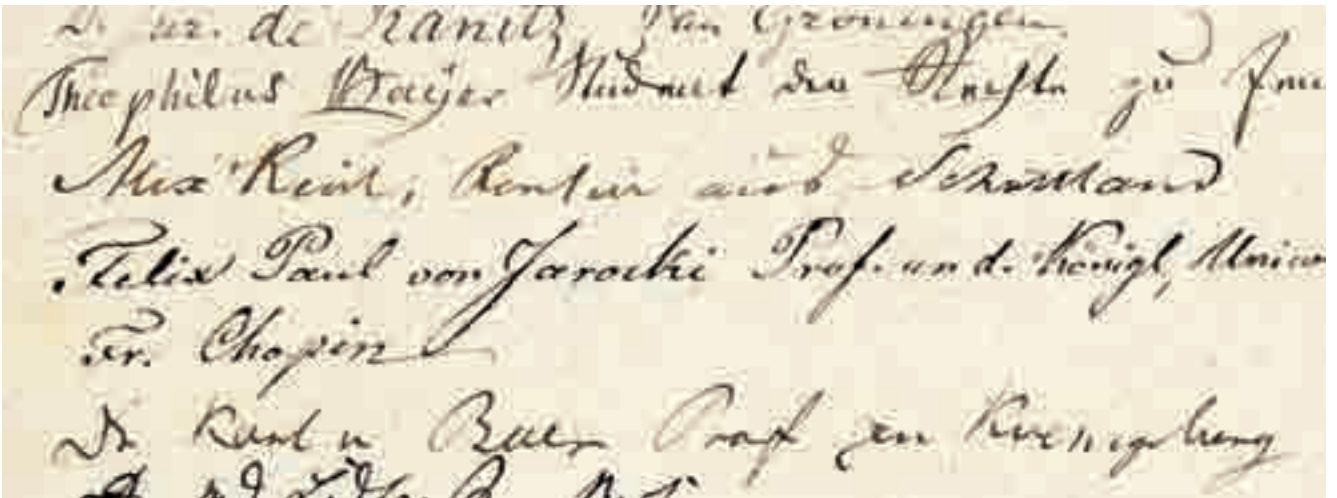 D. ur. de Kanitz, van Groningen
Theophilus Bayer Student der Rechte zu Jena
Alex Reid, Rentier aus Schottland
Felix Paul von Jarocki Prof. an d. Königl, Univer
Fr. Chopin
Dr Karl v Baer Prof zu Koenigsberg